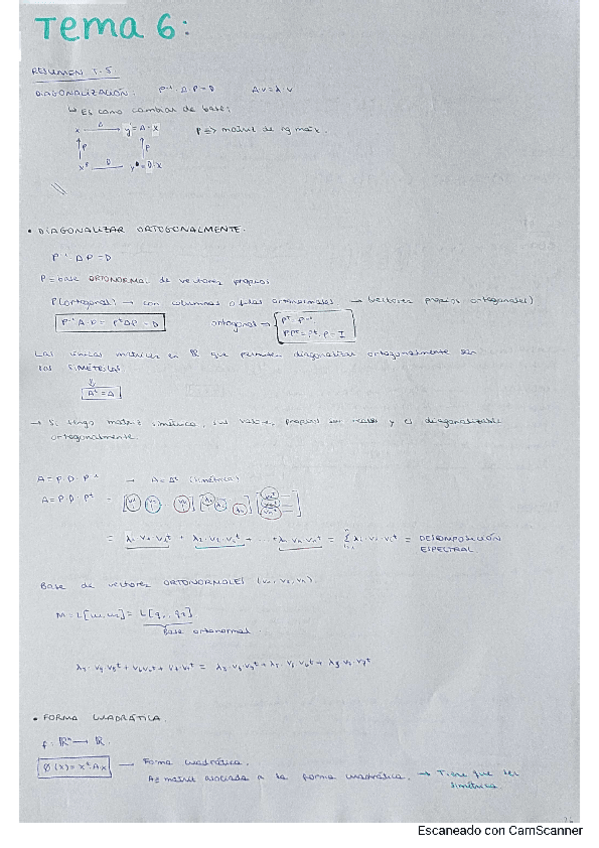 Tema 6:
RESUMEN T-5.
DIAGONALIZACIÓN: P⁻¹·A·P=D A·v=λ·v
↳ Es como cambiar de base:
x —A→ y=A·x P => matriz de
↑P ↑P
D
• DIAGONALIZAR ORTOGONALMENTE.
P⁻¹AP=D
P = base ORTONORMAL de vectores propios
P(ortogonal) → con columnas o filas ortonormales → (vectores propios ortogonales)
P⁻¹A·P = PᵗAP = D ortogonal →
Las únicas matrices en ℝ que permiten diagonalizar ortogonalmente son
las SIMÉTRICAS
↓
Aᵗ=A
→ Si tengo matriz simétrica, sus valores propios son reales y es diagonalizable
ortogonalmente.
A=P·D·P⁻¹ → A=Aᵗ (simétrica)
A=P·D·Pᵗ =
= λ₁·v₁·v₁ᵗ + λ₂·v₂·v₂ᵗ + ... + λₙ·vₙ·vₙᵗ = = DESCOMPOSICIÓN
ESPECTRAL
Base de vectores ORTONORMALES (v₁, v₂, v₃).
Base ortonormal
• FORMA CUADRÁTICA.
f: ℝⁿ → ℝ.
Φ(x)=xᵗAx → Forma cuadrática.
matriz asociada a la forma cuadrática. → Tiene que ser
simétrica.
Escaneado con CamScanner